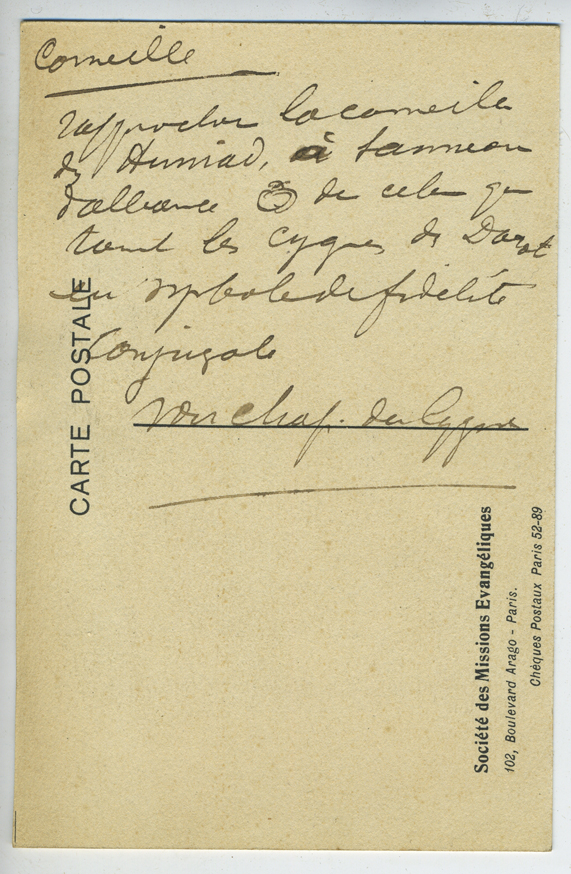 Corneille
rapprocher la corneille
de Huniad, à l'anneau
d'alliance de celui que
tient les cygnes de
en symbole de fidélité
Conjugale
voir chap. du Cygne
CARTE POSTALE
Société des Missions Evangéliques
102, Boulevard Arago - Paris.
Chèques Postaux Paris 52-89